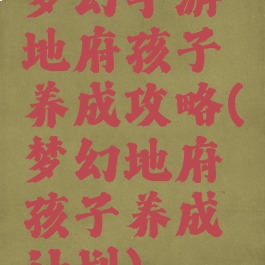 梦幻手游
地府孩子
养成攻略(
梦幻地府
孩子养成
计划)